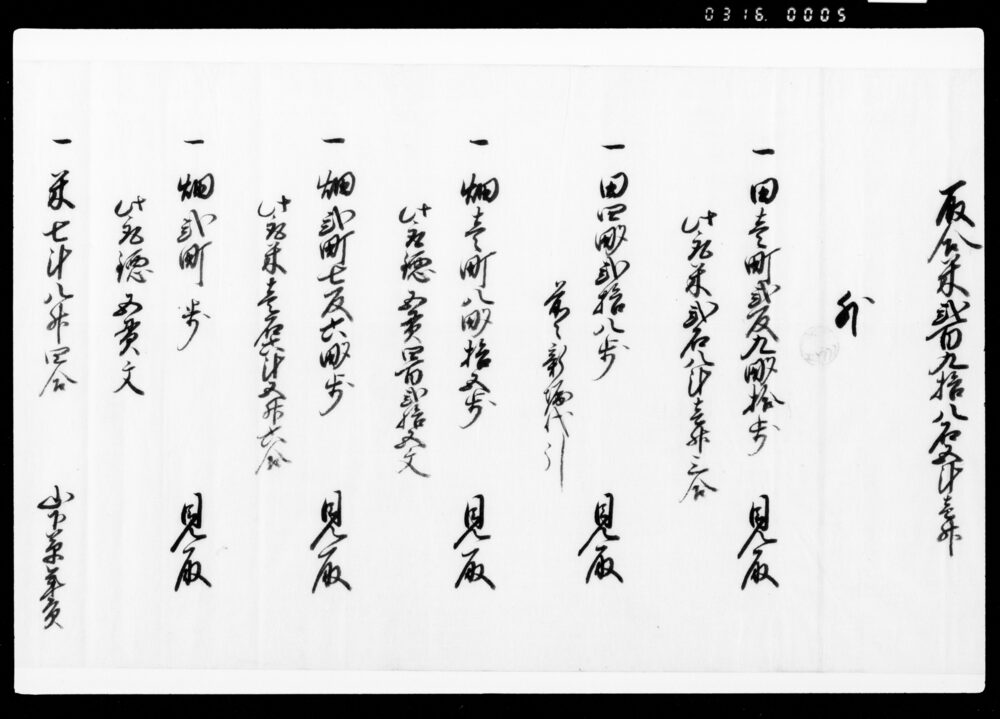 0316 0005
取合米弐百九拾八石五斗壱升
外
一 田壱町弐反九畝拾歩 見取
此取米弐石八斗壱升三合
一 田四畝弐拾八歩 見取
前々新堀代引
一 畑壱町八畝拾五歩 見取
此取永五貫四百弐拾文
一 畑弐町七反六畝歩 見取
此取米壱石六斗五升六合
一 畑弐町歩 見取
此取永五貫文
一 米七斗八升四合 山下草年貢